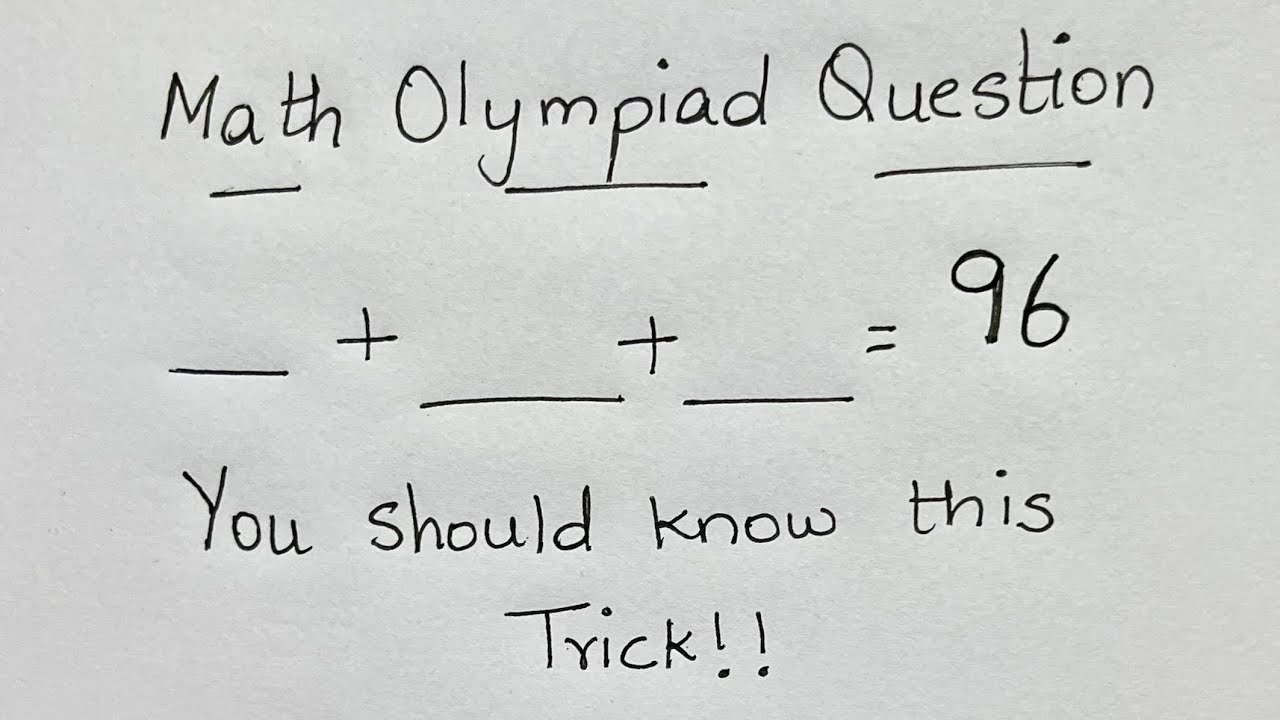 Math Olympiad Question
__ + __ + __ = 96
You should know this
Trick!!